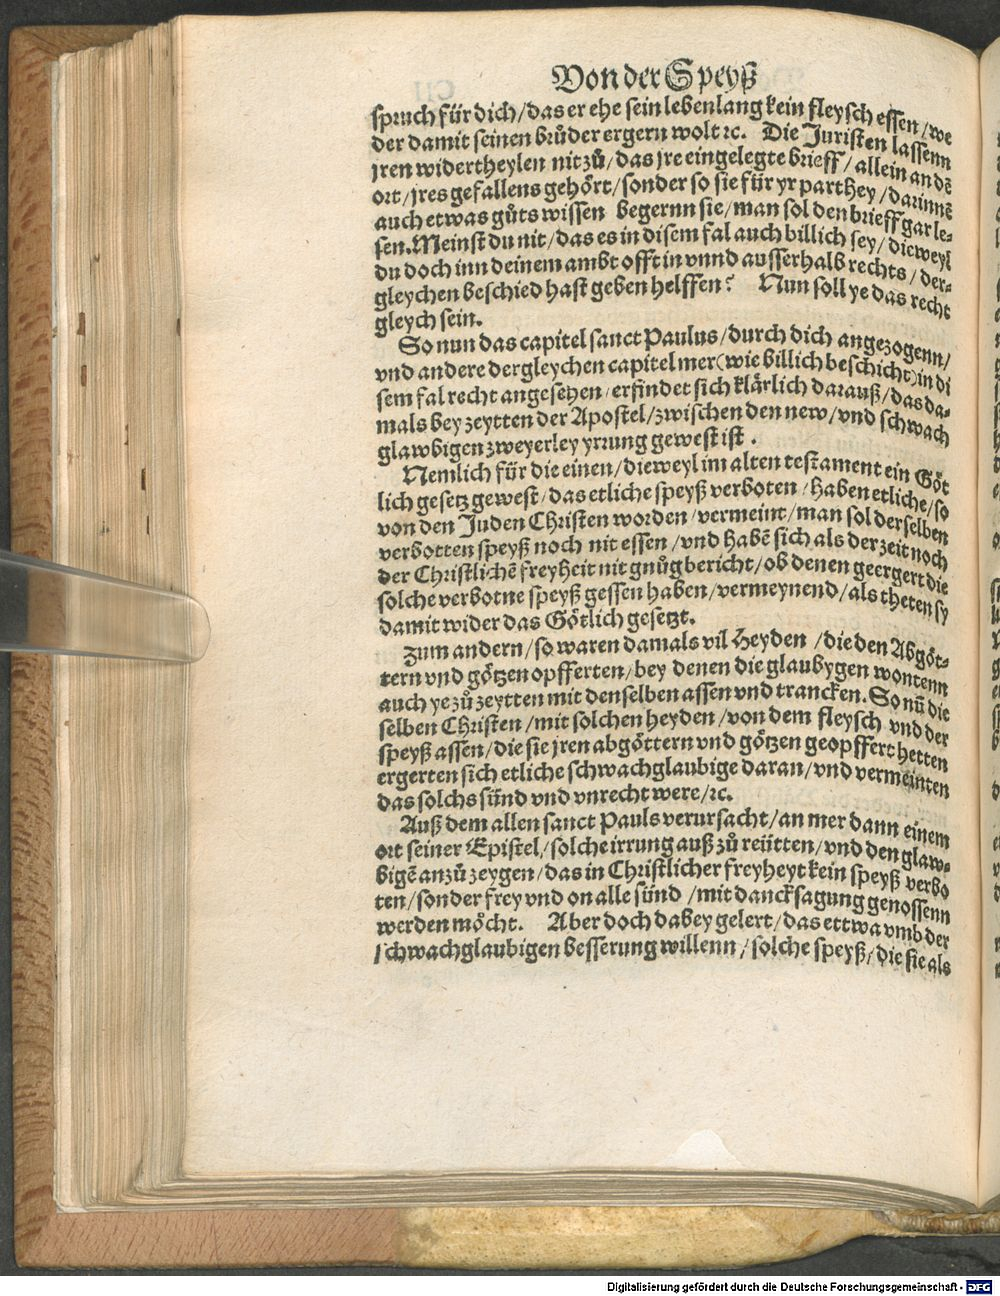 Von der Speyß
spruch für dich / das er ehe sein lebenlang kein fleysch essen / we
der damit seinen brůder ergern wolt ꝛc. Die Juristen lassenn
jren widertheylen nit zů / das jre eingelegte brieff / allein an dē
ort / jres gefallens gehört / sonder so sie für yr parthey / darinnē
auch etwas gůts wissen begernn sie / man sol den brieff gar le⸗
sen. Meinst du nit / das es in disem fal auch billich sey / dieweyl
du doch inn deinem ambt offt in vnnd ausserhalb rechts / der⸗
gleychen beschied hast geben helffen? Nun soll ye das recht
gleych sein.
So nun das capitel sanct Paulus / durch dich angezogenn /
vnd andere dergleychen capitel mer (wie billich beschicht) in di
sem fal recht angesehen / erfindet sich klärlich darauß / das da⸗
mals bey zeytten der Apostel / zwischen den new / vnd schwach
glawbigen zweyerley yrrung gewest ist .
Nemlich für die einen / dieweyl im alten testament ein Göt
lich gesetz gewest / das etliche speyß verboten / haben etliche / so
von den Juden Christen worden / vermeint / man sol derselben
verbotten speyß noch nit essen / vnd habē sich als der zeit noch
der Christlichē freyheit nit gnůg bericht / ob denen geergert die
solche verbotne speyß gessen haben / vermeynend / als theten sy
damit wider das Götlich gesetzt.
Zum andern / so waren damals vil Heyden / die den Abgöt⸗
tern vnd götzen opfferten / bey denen die glaubygen wontenn
auch ye zů zeytten mit denselben assen vnd trancken. So nū die
selben Christen / mit solchen heyden / von dem fleysch vnd der
speyß assen / die sie jren abgöttern vnd götzen geopffert hetten
ergerten sich etliche schwachglaubige daran / vnd vermeinten
das solchs sünd vnd vnrecht were / ꝛc.
Auß dem allen sanct Pauls verursacht / an mer dann einem
ort seiner Epistel / solche irrung auß zů reütten / vnd den glaw⸗
bigē anzů zeygen / das in Christlicher freyheyt kein speyß verbo
ten / sonder frey vnd on alle sünd / mit dancksagung genossenn
werden möcht. Aber doch dabey gelert / das ettwa vmb der
schwachglaubigen besserung willenn / solche speyß / die sie als
Digitalisierung gefördert durch die Deutsche Forschungsgemeinschaft - DFG